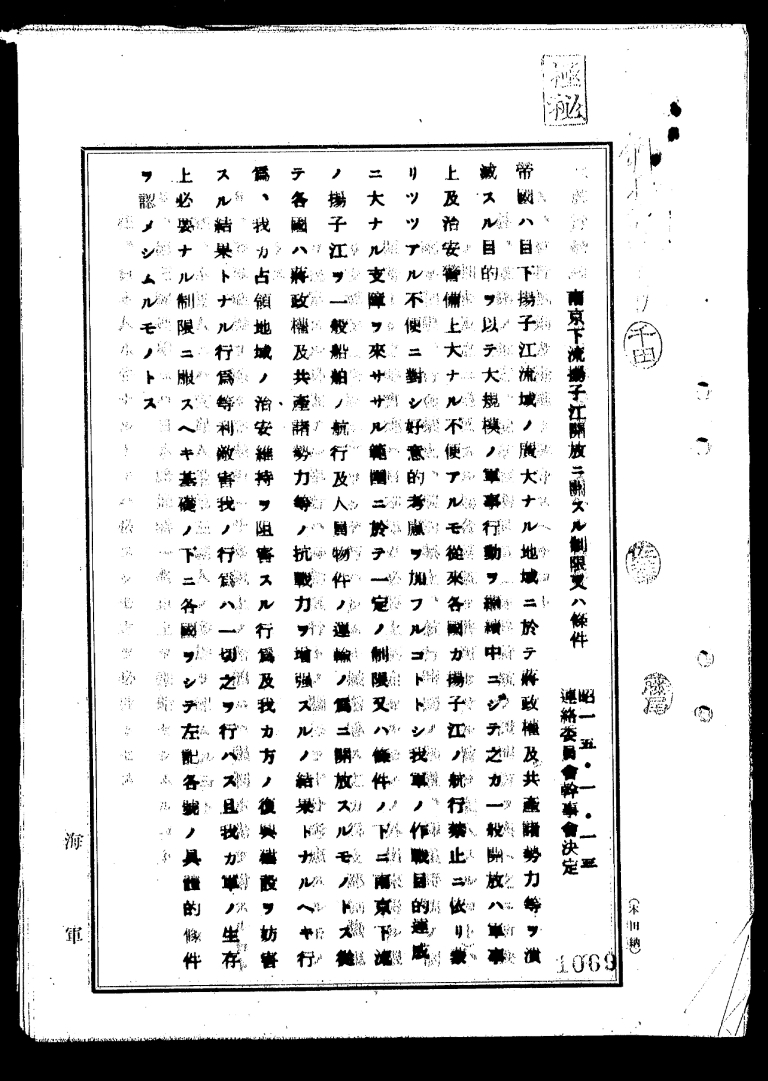 極秘
南京下流揚子江開放ニ關スル制限又ハ條件
昭一五・一・一三
連絡委員會幹事會決定
帝國ハ目下揚子江流域ノ廣大ナル地域ニ於テ蔣政權及共產諸勢力等ヲ潰
滅スル目的ヲ以テ大規模ノ軍事行動ヲ繼續中ニシテ之カ一般開放ハ軍事
上及治安警備上大ナル不便アルモ從來各國カ揚子江ノ航行禁止ニ依リ蒙
リツツアル不便ニ對シ好意的考慮ヲ加フルコトトシ我軍ノ作戰目的達成
ニ大ナル支障ヲ來ササル範圍ニ於テ一定ノ制限又ハ條件ノ下ニ南京下流
ノ揚子江ヲ一般船舶ノ航行及人員物件ノ運輸ノ爲ニ開放スルモノトス從
テ各國ハ蔣政權及共產諸勢力等ノ抗戰力ヲ增强スルノ結果トナルヘキ行
爲、我カ占領地域ノ治安維持ヲ阻害スル行爲及我カ方ノ復興建設ヲ妨害
スル結果トナル行爲等利敵害我ノ行爲ハ一切之ヲ行ハス且我カ軍ノ生存
上必要ナル制限ニ服スヘキ基礎ノ下ニ各國ヲシテ左記各號ノ具體的條件
ヲ認メシムルモノトス
海軍
千田
1069